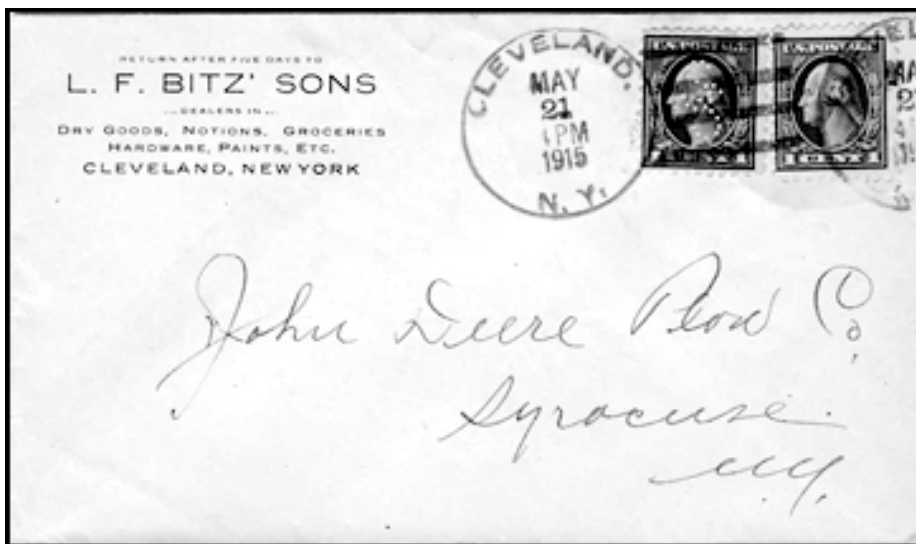 RETURN AFTER FIVE DAYS TO
L. F. BITZ' SONS
...DEALERS IN...
DRY GOODS, NOTIONS, GROCERIES
HARDWARE, PAINTS, ETC.
CLEVELAND, NEW YORK
CLEVELAND.
MAY
21
4PM
1915
N. Y.
U.S. POSTAGE
1 CENT 1
U.S. POSTAGE
1 CENT 1
John Deere Plow Co.
Syracuse
N.Y.